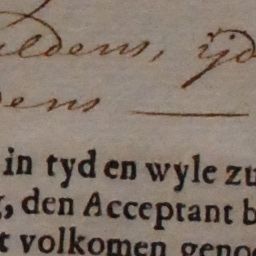 uldens, ijd
ens
in tyd en wyle zu
, den Acceptant b
t volkomen geno